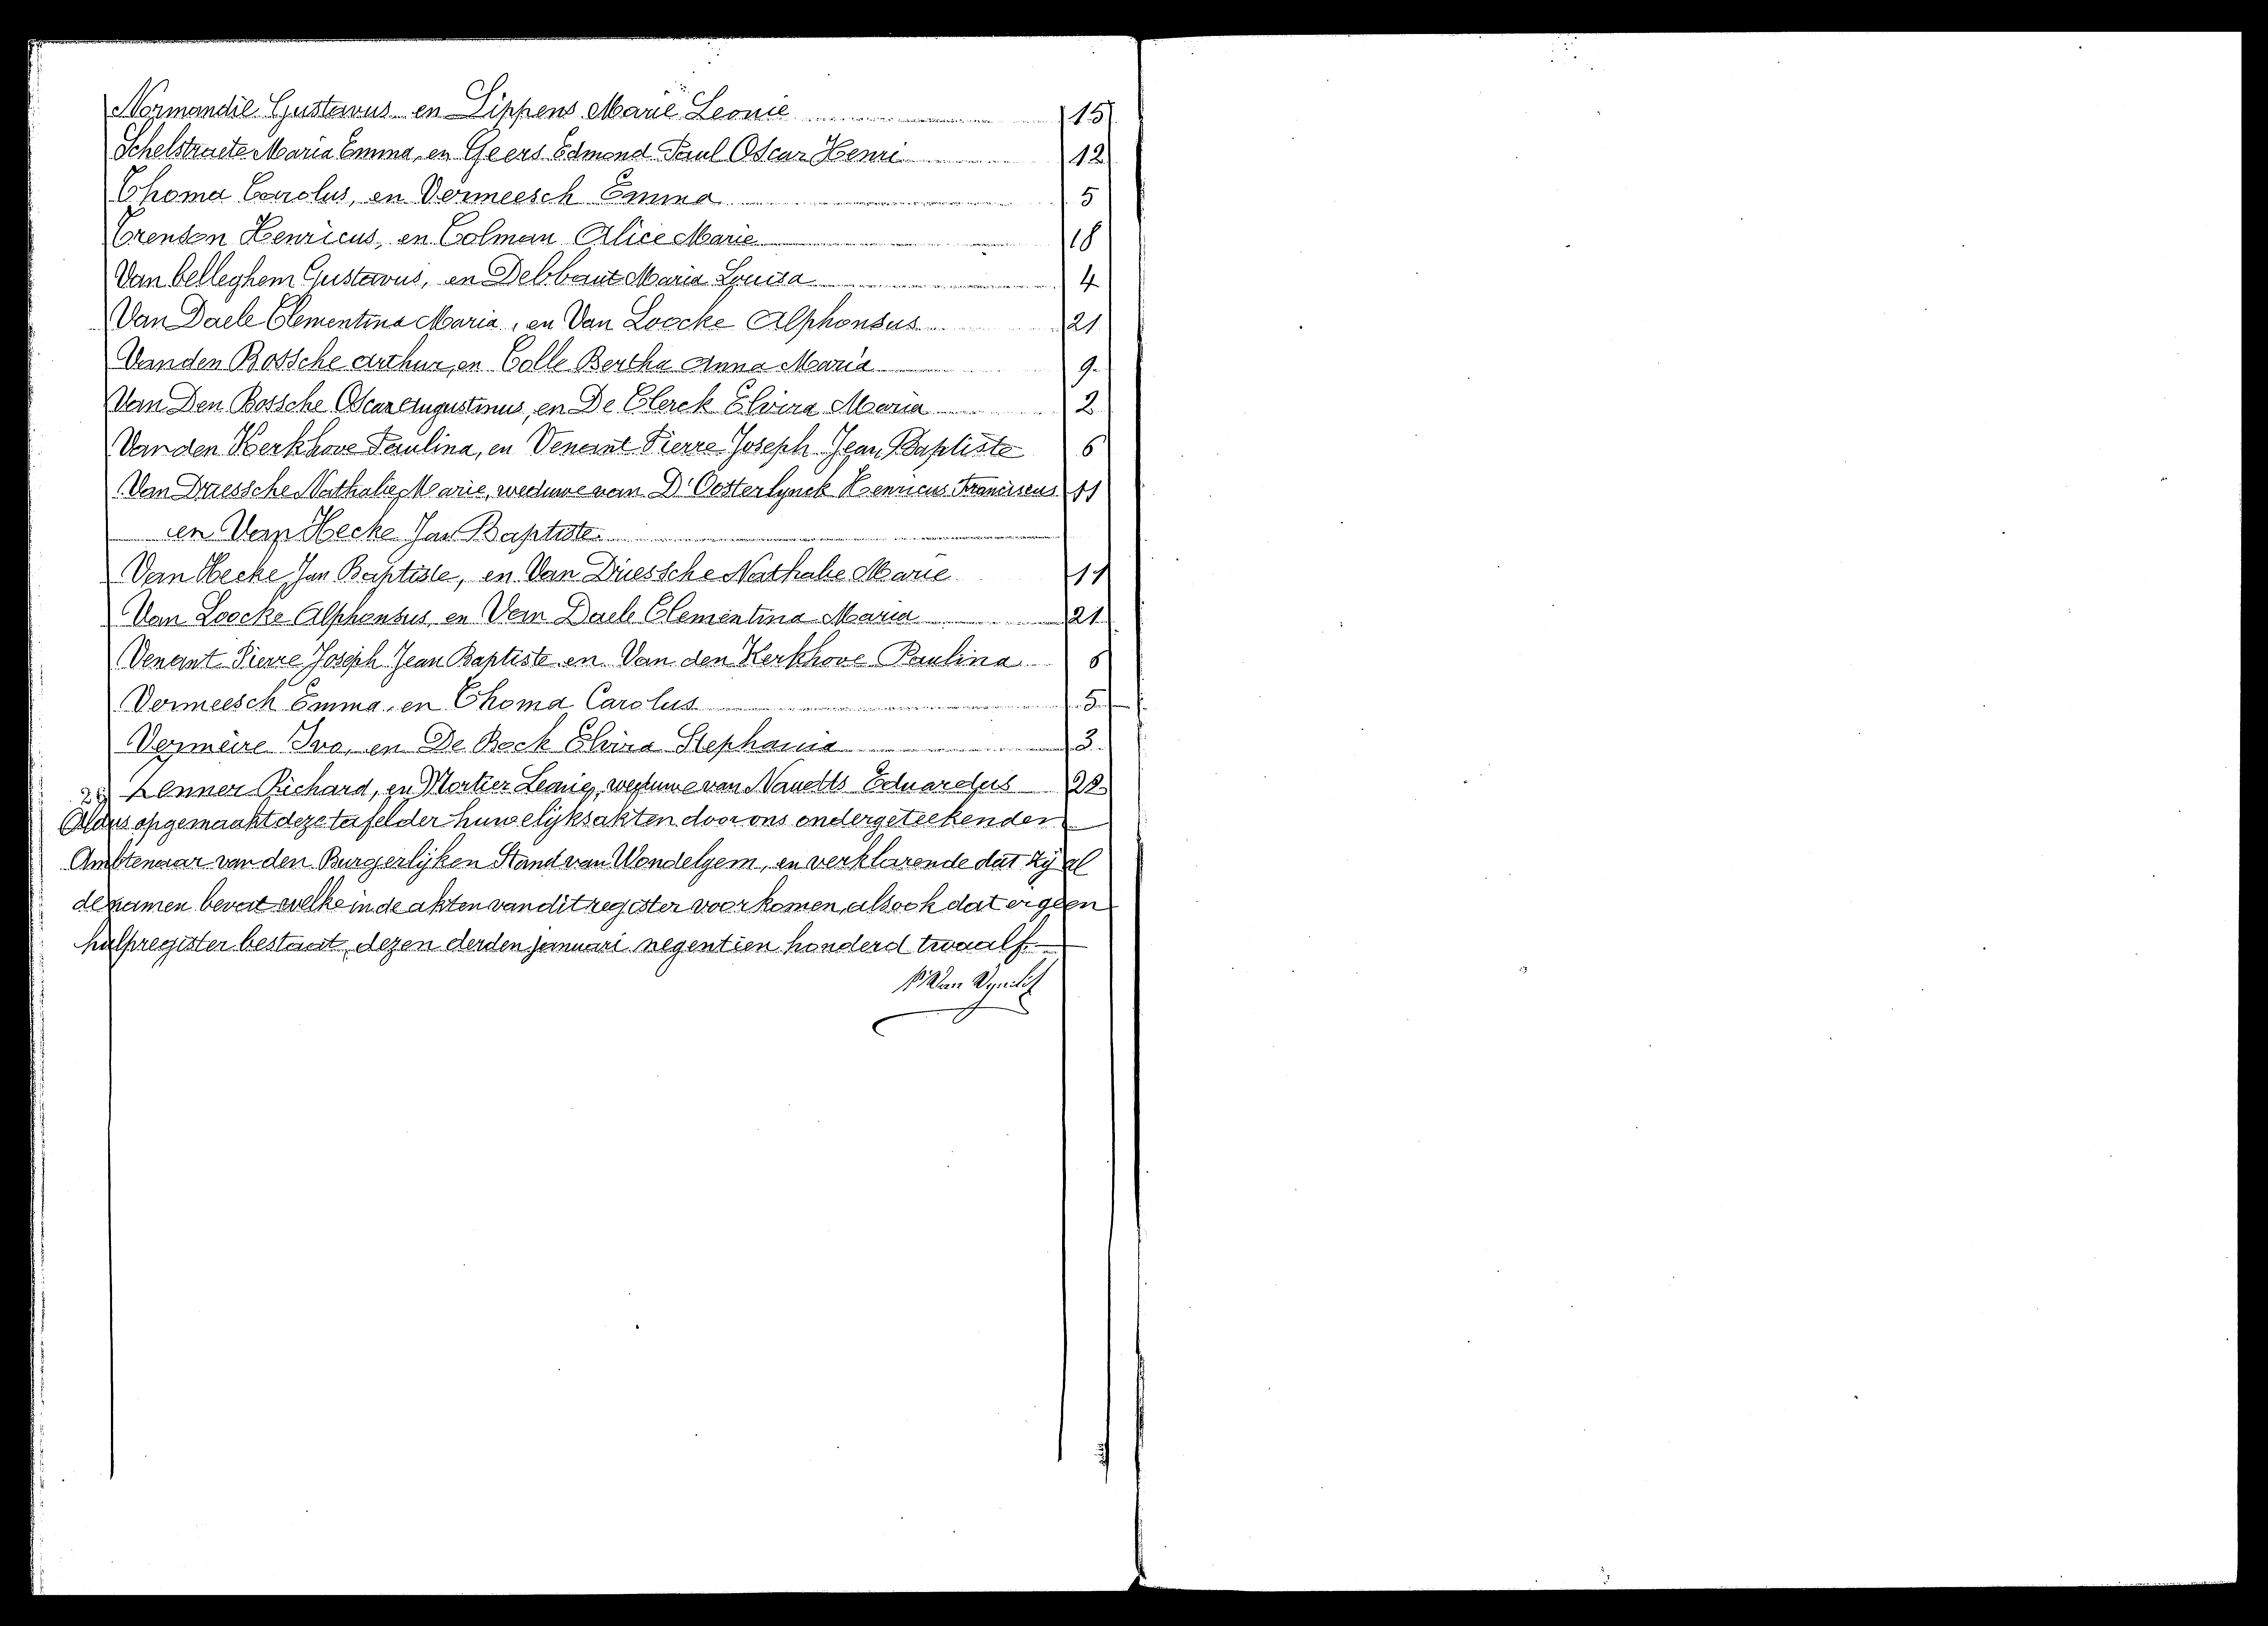 Normandie Gustavus en Lippens Marie Leonie 15
Schelstraete Maria Emma, en Geers Edmond Paul Oscar Henri 12
Thoma Carolus, en Vermeesch Emma 5
Trenson Henricus, en Colman Alice Marie 18
Van belleghem Gustavus, en Delbaut Maria Louisa 4
Van Daele Clementina Maria, en Van Loocke Alphonsus 21
Vanden Bossche Arthur, en Colle Bertha Anna Maria 9
Van Den Bossche Oscar Augustinus, en De Clerck Elvira Maria 2
Van den Kerkhove Paulina, en Venant Pierre Joseph Jean Baptiste 6
Van Driessche Nathalie Marie, weduwe van D'Oosterlynck Henricus Franciscus 11
en Van Hecke Jan Baptiste
Van Hecke Jan Baptiste, en Van Driessche Nathalie Marie 11
Van Loocke Alphonsus, en Van Daele Clementina Maria 21
Venant Pierre Joseph Jean Baptiste en Van den Kerkhove Paulina 6
Vermeesch Emma, en Thoma Carolus 5
Vermeire Ivo, en De Bock Elvira Stephania 3
Zenner Richard, en Mortier Leonie, weduwe van Eduardus 22
Aldus opgemaakt deze tafel der huwelijksakten door ons ondergeteekenden
Ambtenaar van den Burgerlijken Stand van Wondelgem, en verklarende dat zij al
de namen bevat welke in de akten van dit register voorkomen, alsook dat er geen
hulpregister bestaat, dezen derden januari negentien honderd twaalf